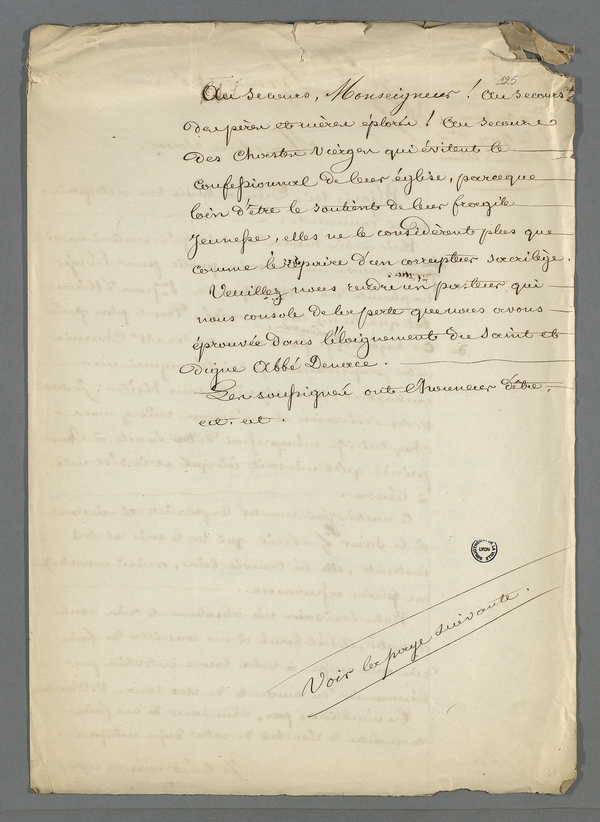 195
Au secours, Monseigneur ! Au secours
des pères et mères éplorés ! Au secours
des Chastes Vierges qui évitent le
Confessionnal de leur église, parceque
loin d'être le soutient de leur fragile
Jeunesse, elles ne le considèrent plus que
comme le repaire d'un corrupteur sacrilège.
Veuillez nous rendre un pasteur qui
nous console de la perte que nous avons
éprouvée dans l'éloignement du Saint et
digne Abbé
Les soussignés ont l'honneur d'être,
et. et.
Voir la page suivante.